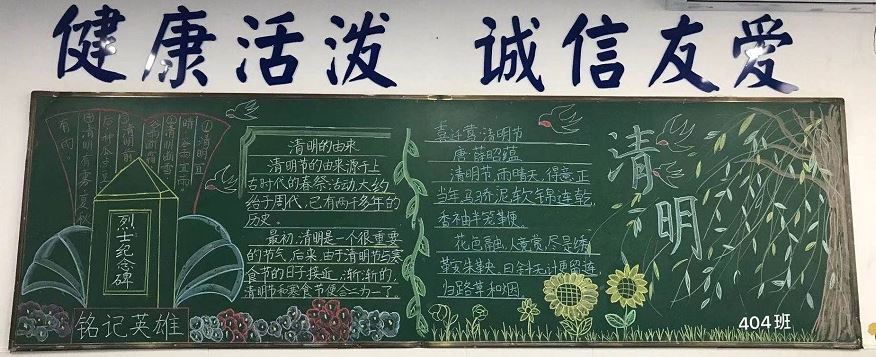 健康活泼 诚信友爱
清明的由来
清明节的由来源于上
古时代的春祭活动,大约
始于周代,已有两千多年的
历史。
最初,清明是一个很重要
的节气,后来,由于清明节与寒
食节的日子接近,渐渐的,
清明节和寒食节便合二为一了。
喜迁莺·清明节
唐·薛昭蕴
清明节,雨晴天,得意正
当年,马骄泥软锦连乾,
香袖半笼鞭。
花色融,人竞赏,尽是绣
鞍朱鞅,日斜无计更留连,
归路草和烟。
清明
烈士纪念碑
铭记英雄
404班